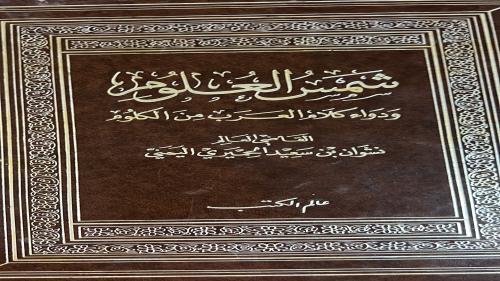 شمس العلوم
ودواء كلام العرب من الكلوم
القاضي العالم
نشوان بن سعيد الحميري اليمني
عالم الكتب